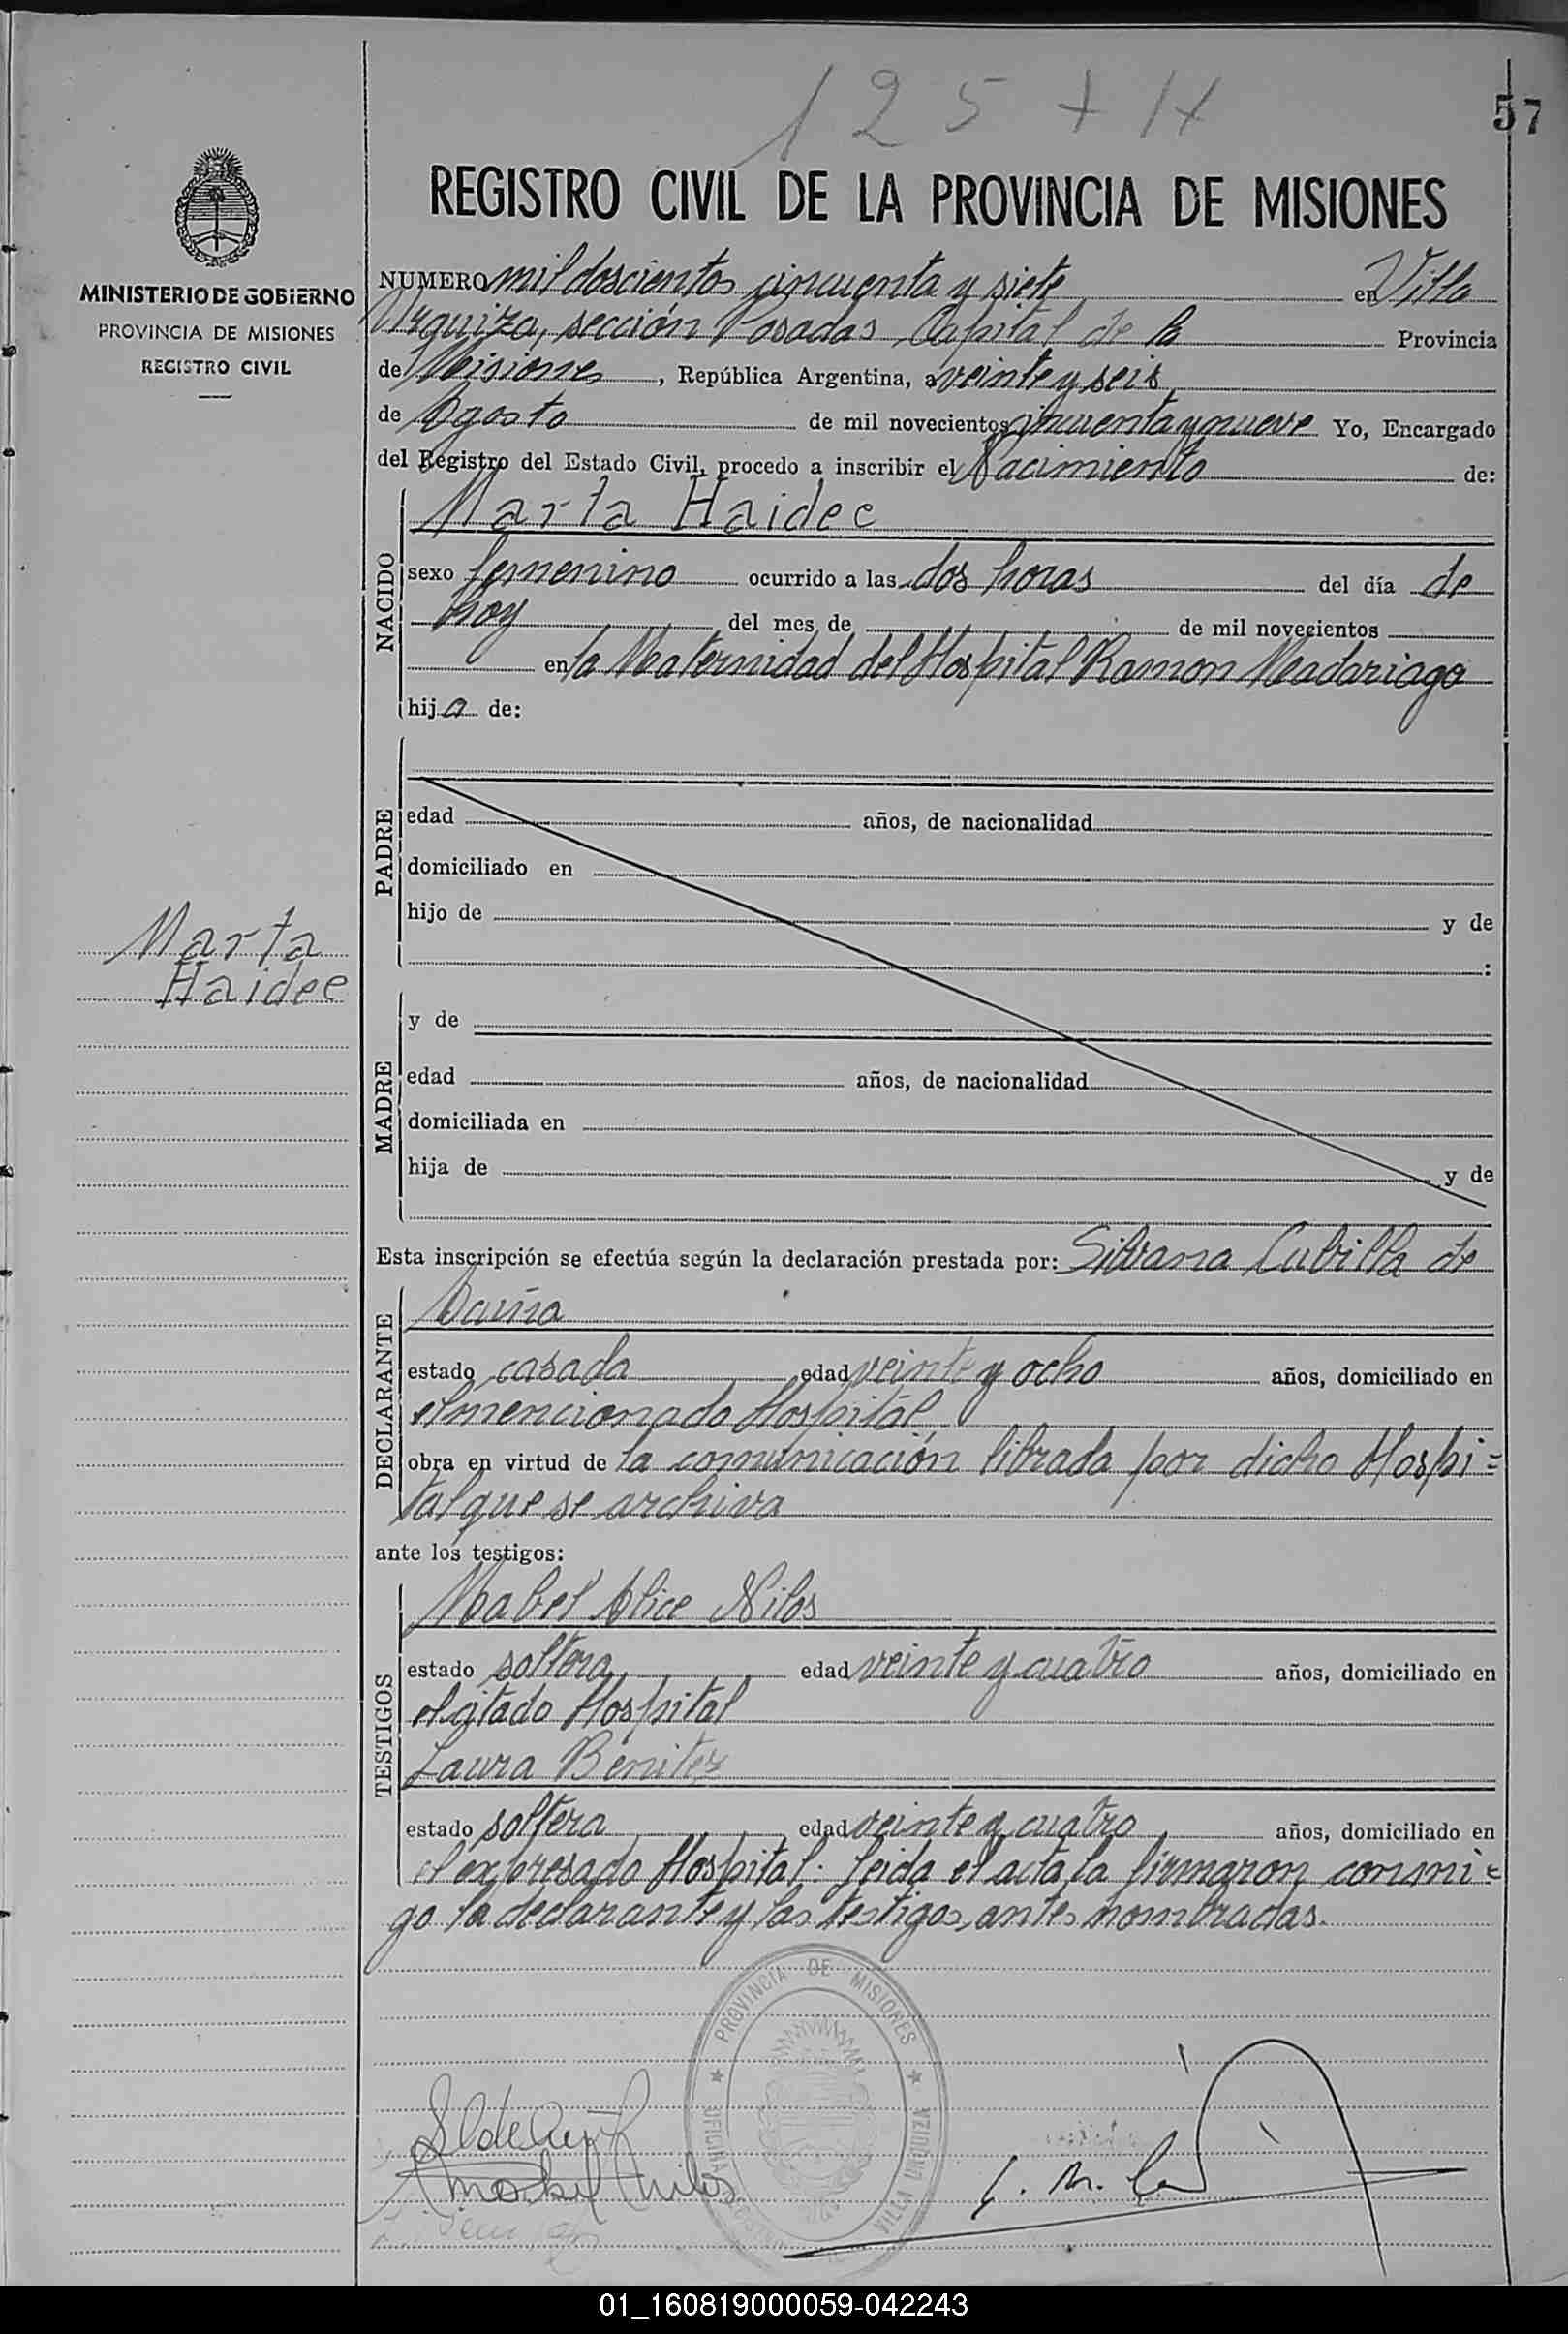 125 + 14
57
REGISTRO CIVIL DE LA PROVINCIA DE MISIONES
MINISTERIO DE GOBIERNO
PROVINCIA DE MISIONES
REGISTRO CIVIL
NUMERO mil doscientos cincuenta y siete en Villa
Urquiza, sección Posadas, Capital de la Provincia
de Misiones, República Argentina, a veinte y seis
de Agosto de mil novecientos cincuenta y nueve Yo, Encargado
del Registro del Estado Civil, procedo a inscribir el Nacimiento de:
NACIDO
Marta Haidee
sexo femenino ocurrido a las dos horas del día de
hoy del mes de de mil novecientos
en la Maternidad del Hospital Ramon Madariaga
hija de:
PADRE
edad años, de nacionalidad
domiciliado en
hijo de y de
:
Marta
Haidee
MADRE
y de
edad años, de nacionalidad
domiciliada en
hija de y de
Esta inscripción se efectúa según la declaración prestada por: Silvana Cubilla de
DECLARANTE
estado casada edad veinte y ocho años, domiciliado en
el mencionado Hospital
obra en virtud de la comunicación librada por dicho Hospi=
tal que se archiva
ante los testigos:
TESTIGOS
Mabel Alice Nilos
estado soltera edad veinte y cuatro años, domiciliado en
el citado Hospital
Laura Benitez
estado soltera edad veinte y cuatro años, domiciliado en
el expresado Hospital. Leida el acta la firmaron conmi=
go la declarante y las testigos antes nombradas.
PROVINCIA DE MISIONES
OFICINA
VILLA URQUIZA
01_160819000059-042243